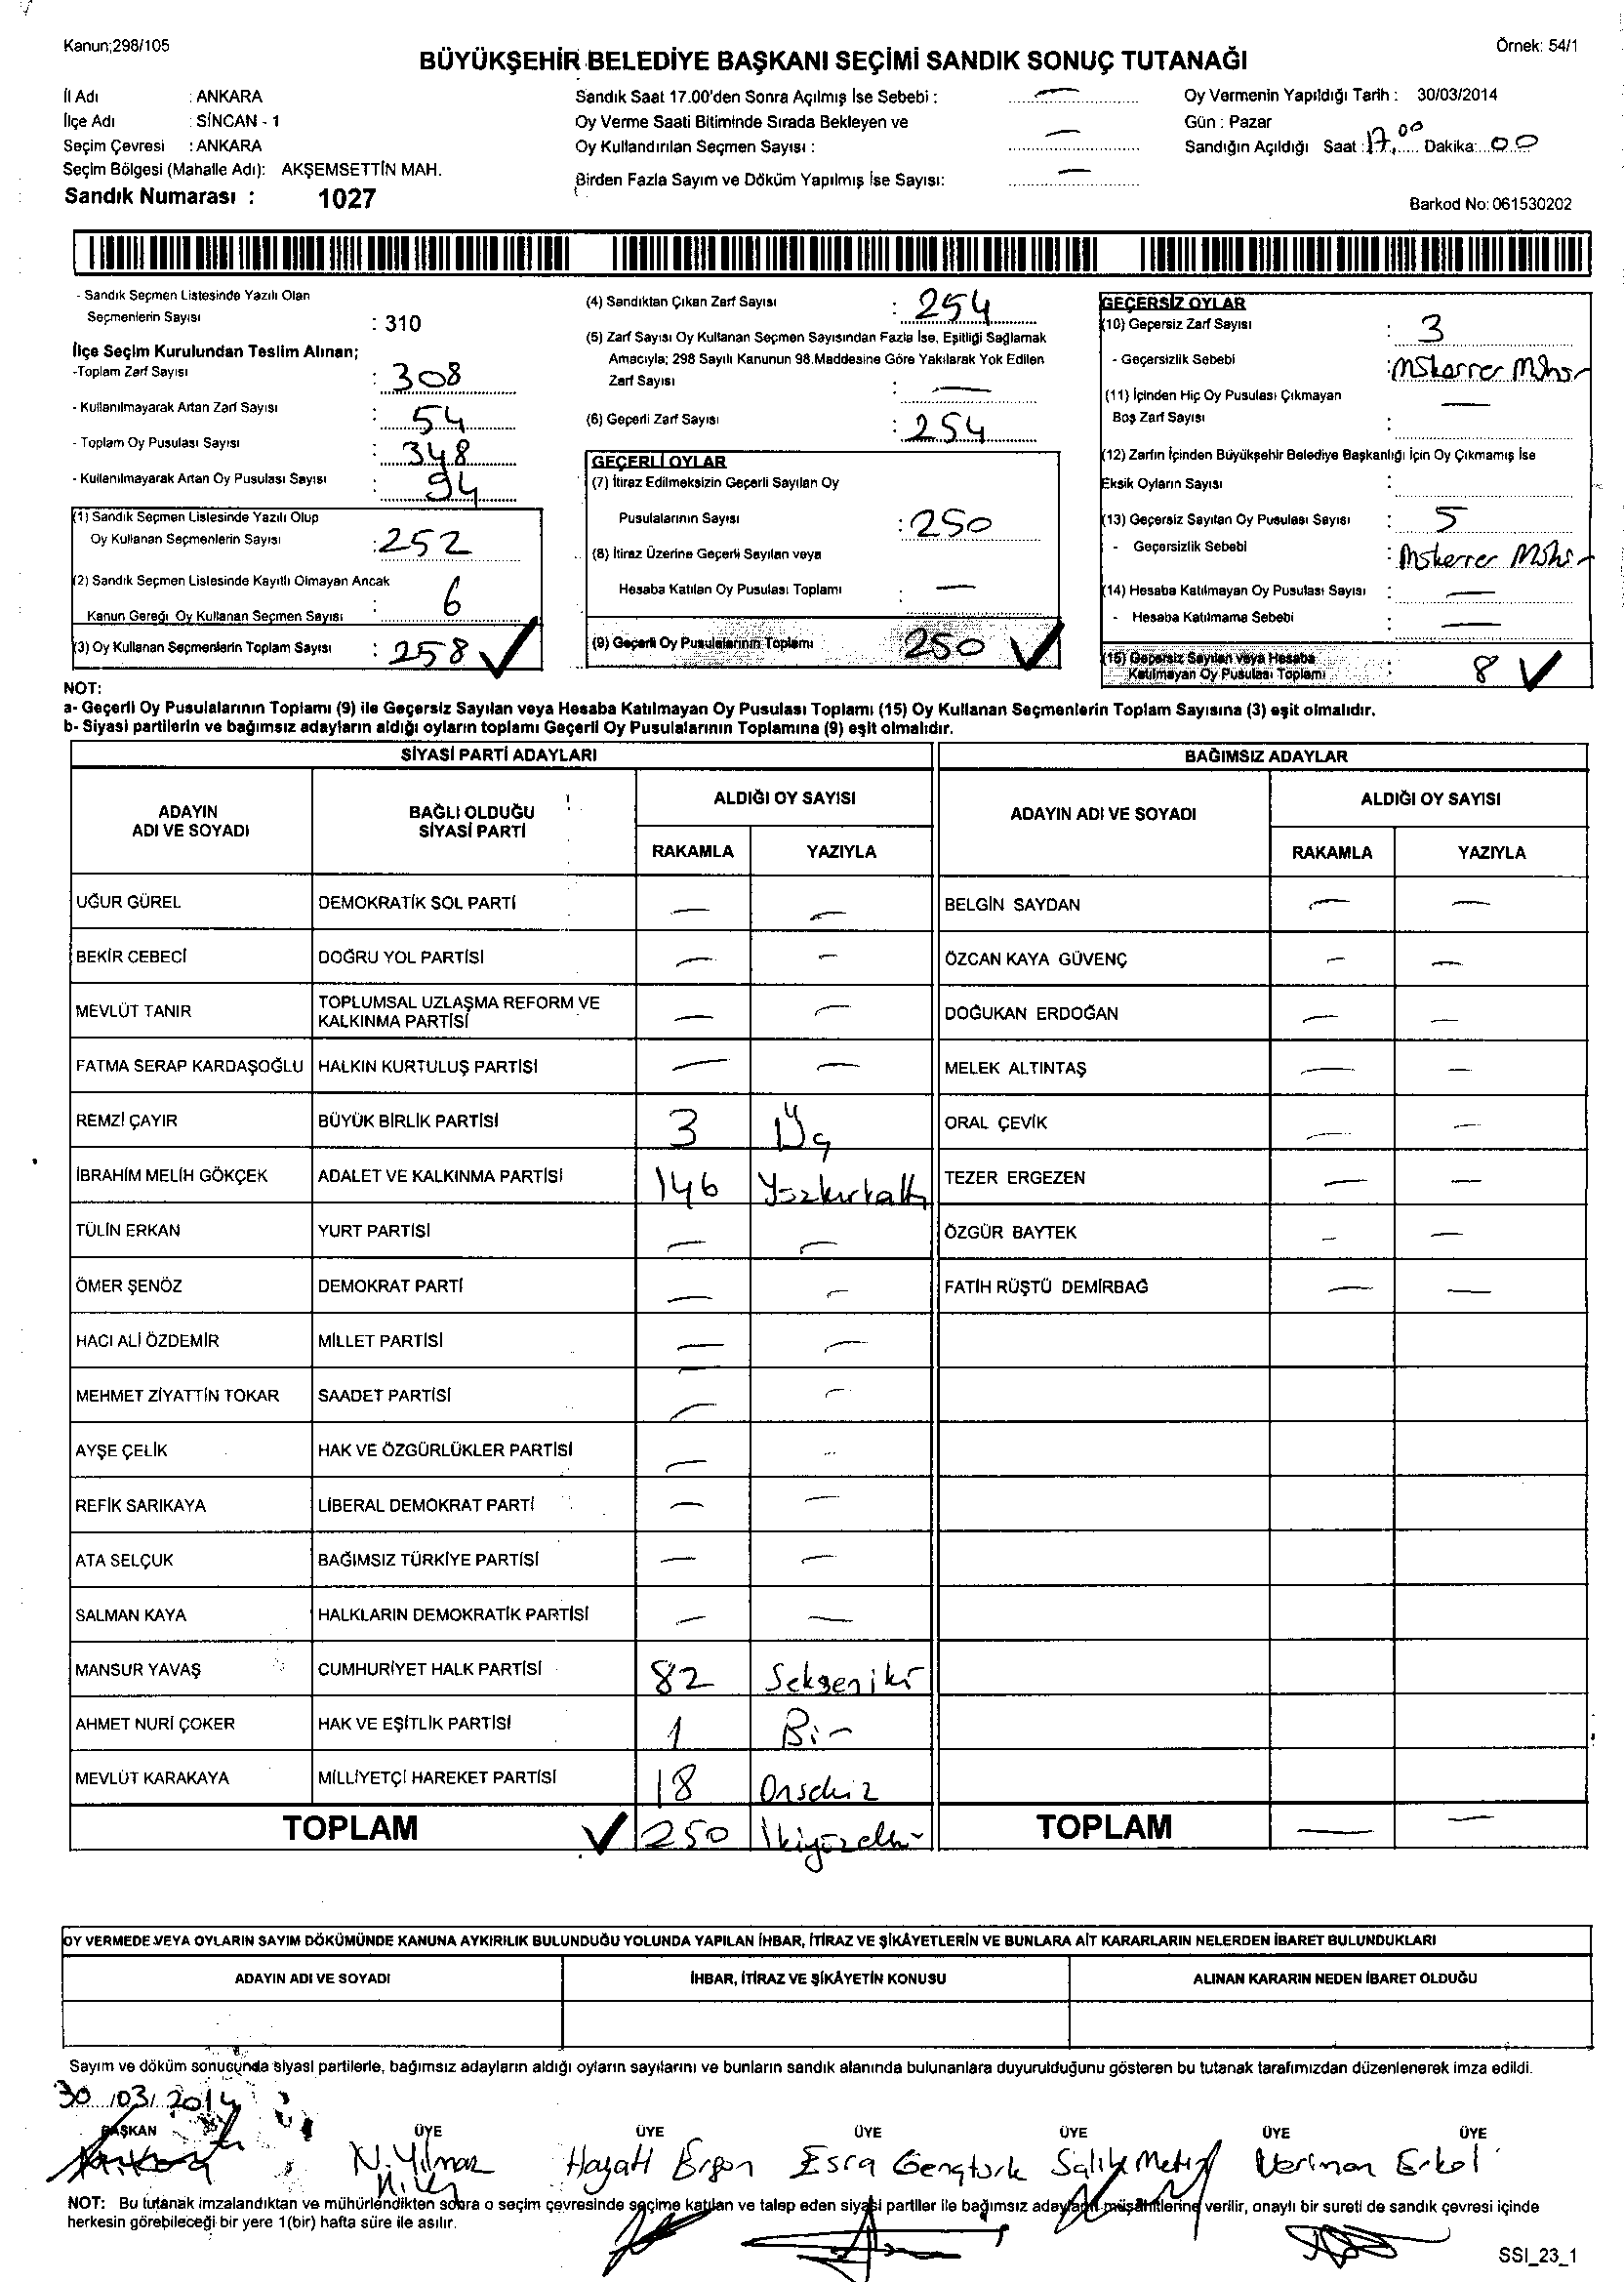 Kanun;298/105
Örnek: 54/1
BÜYÜKŞEHİR BELEDİYE BAŞKANI SEÇİMİ SANDIK SONUÇ TUTANAĞI
İl Adı : ANKARA
İlçe Adı : SİNCAN - 1
Seçim Çevresi : ANKARA
Seçim Bölgesi (Mahalle Adı): AKŞEMSETTİN MAH.
Sandık Numarası : 1027
Sandık Saat 17.00'den Sonra Açılmış İse Sebebi : —
Oy Verme Saati Bitiminde Sırada Bekleyen ve
Oy Kullandırılan Seçmen Sayısı : —
Birden Fazla Sayım ve Döküm Yapılmış İse Sayısı: —
Oy Vermenin Yapıldığı Tarih : 30/03/2014
Gün : Pazar
Sandığın Açıldığı Saat : 17,00 Dakika: 00
Barkod No: 061530202
- Sandık Seçmen Listesinde Yazılı Olan
Seçmenlerin Sayısı : 310
İlçe Seçim Kurulundan Teslim Alınan;
-Toplam Zarf Sayısı : 308
- Kullanılmayarak Artan Zarf Sayısı : 54
- Toplam Oy Pusulası Sayısı : 348
- Kullanılmayarak Artan Oy Pusulası Sayısı : 94
(1) Sandık Seçmen Listesinde Yazılı Olup
Oy Kullanan Seçmenlerin Sayısı : 252
(2) Sandık Seçmen Listesinde Kayıtlı Olmayan Ancak
Kanun Gereği Oy Kullanan Seçmen Sayısı : 6
(3) Oy Kullanan Seçmenlerin Toplam Sayısı : 258
(4) Sandıktan Çıkan Zarf Sayısı : 254
(5) Zarf Sayısı Oy Kullanan Seçmen Sayısından Fazla İse, Eşitliği Sağlamak
Amacıyla; 298 Sayılı Kanunun 98.Maddesine Göre Yakılarak Yok Edilen
Zarf Sayısı : —
(6) Geçerli Zarf Sayısı : 254
GEÇERLİ OYLAR
(7) İtiraz Edilmeksizin Geçerli Sayılan Oy
Pusulalarının Sayısı : 250
(8) İtiraz Üzerine Geçerli Sayılan veya
Hesaba Katılan Oy Pusulası Toplamı : —
(9) Geçerli Oy Pusulalarının Toplamı 250
GEÇERSİZ OYLAR
(10) Geçersiz Zarf Sayısı : 3
- Geçersizlik Sebebi :
(11) İçinden Hiç Oy Pusulası Çıkmayan
Boş Zarf Sayısı : —
(12) Zarfın İçinden Büyükşehir Belediye Başkanlığı İçin Oy Çıkmamış İse
Eksik Oyların Sayısı :
(13) Geçersiz Sayılan Oy Pusulası Sayısı : 5
- Geçersizlik Sebebi :
(14) Hesaba Katılmayan Oy Pusulası Sayısı : —
- Hesaba Katılmama Sebebi : —
(15) Geçersiz Sayılan veya Hesaba
Katılmayan Oy Pusulası Toplamı : 8
NOT:
a- Geçerli Oy Pusulalarının Toplamı (9) ile Geçersiz Sayılan veya Hesaba Katılmayan Oy Pusulası Toplamı (15) Oy Kullanan Seçmenlerin Toplam Sayısına (3) eşit olmalıdır.
b- Siyasi partilerin ve bağımsız adayların aldığı oyların toplamı Geçerli Oy Pusulalarının Toplamına (9) eşit olmalıdır.
SİYASİ PARTİ ADAYLARI
ADAYIN ADI VE SOYADI
BAĞLI OLDUĞU SİYASİ PARTİ
ALDIĞI OY SAYISI
RAKAMLA YAZIYLA
UĞUR GÜREL DEMOKRATİK SOL PARTİ — —
BEKİR CEBECİ DOĞRU YOL PARTİSİ — —
MEVLÜT TANIR TOPLUMSAL UZLAŞMA REFORM VE KALKINMA PARTİSİ — —
FATMA SERAP KARDAŞOĞLU HALKIN KURTULUŞ PARTİSİ — —
REMZİ ÇAYIR BÜYÜK BİRLİK PARTİSİ 3 Üç
İBRAHİM MELİH GÖKÇEK ADALET VE KALKINMA PARTİSİ 146 Yüzkırkaltı
TÜLİN ERKAN YURT PARTİSİ — —
ÖMER ŞENÖZ DEMOKRAT PARTİ — —
HACI ALİ ÖZDEMİR MİLLET PARTİSİ — —
MEHMET ZİYATTİN TOKAR SAADET PARTİSİ — —
AYŞE ÇELİK HAK VE ÖZGÜRLÜKLER PARTİSİ —
REFİK SARIKAYA LİBERAL DEMOKRAT PARTİ — —
ATA SELÇUK BAĞIMSIZ TÜRKİYE PARTİSİ — —
SALMAN KAYA HALKLARIN DEMOKRATİK PARTİSİ — —
MANSUR YAVAŞ CUMHURİYET HALK PARTİSİ 82 Sekseniki
AHMET NURİ ÇOKER HAK VE EŞİTLİK PARTİSİ 1 Bir
MEVLÜT KARAKAYA MİLLİYETÇİ HAREKET PARTİSİ 18 Onsekiz
TOPLAM 250 İkiyüzelli
BAĞIMSIZ ADAYLAR
ADAYIN ADI VE SOYADI
ALDIĞI OY SAYISI
RAKAMLA YAZIYLA
BELGİN SAYDAN — —
ÖZCAN KAYA GÜVENÇ — —
DOĞUKAN ERDOĞAN — —
MELEK ALTINTAŞ — —
ORAL ÇEVİK — —
TEZER ERGEZEN — —
ÖZGÜR BAYTEK — —
FATİH RÜŞTÜ DEMİRBAĞ — —
TOPLAM — —
OY VERMEDE VEYA OYLARIN SAYIM DÖKÜMÜNDE KANUNA AYKIRILIK BULUNDUĞU YOLUNDA YAPILAN İHBAR, İTİRAZ VE ŞİKÂYETLERİN VE BUNLARA AİT KARARLARIN NELERDEN İBARET BULUNDUKLARI
ADAYIN ADI VE SOYADI
İHBAR, İTİRAZ VE ŞİKÂYETİN KONUSU
ALINAN KARARIN NEDEN İBARET OLDUĞU
Sayım ve döküm sonucunda siyasi partilerle, bağımsız adayların aldığı oyların sayılarını ve bunların sandık alanında bulunanlara duyurulduğunu gösteren bu tutanak tarafımızdan düzenlenerek imza edildi.
30/03/2014
BAŞKAN ÜYE ÜYE ÜYE ÜYE ÜYE ÜYE
N. Yılmaz Hayati Ergon Esra Gençtürk Salih Metin Neriman Erkol
NOT: Bu tutanak imzalandıktan ve mühürlendikten sonra o seçim çevresinde seçime katılan ve talep eden siyasi partiler ile bağımsız adayların müşahitlerine verilir, onaylı bir sureti de sandık çevresi içinde
herkesin görebileceği bir yere 1(bir) hafta süre ile asılır.
SSI_23_1